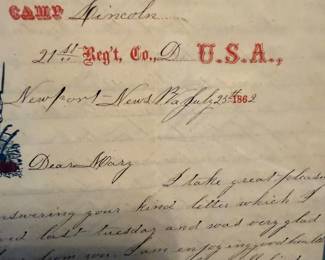 CAMP Lincoln
21st Reg't, Co., D. U.S.A.,
Newport News Va July 25th 1862
Dear Mary
I take great pleasu
answering your kind letter which I
last tuesday and was very glad
from you. I am enjoying good health